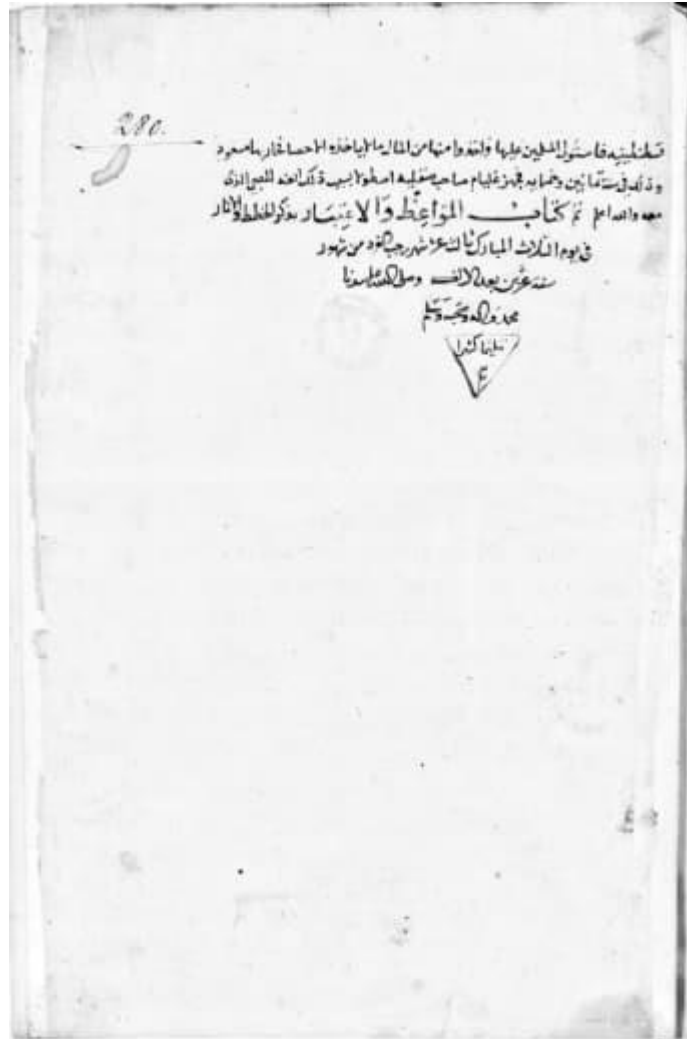 280.
قسطنطينيه فاستولى المسلمين عليها واخذوا منها من المال ما لم ياخذه الاحصا
وذلك في سنة ثمانين وخمسمايه غليام صاحب صقليه اسطولا بسبب ذلك الصبي الذى
معه والله اعلم تم كتاب المواعظ والاعتبار بذكر الخطط والاثار
فى يوم الثلاث المبارك ثالث عشر شهر رجب الفرد من شهور
سنة عشرين بعد الالف وصلى الله على سيدنا
محمد واله وصحبه وسلم
تسليما كثيرا